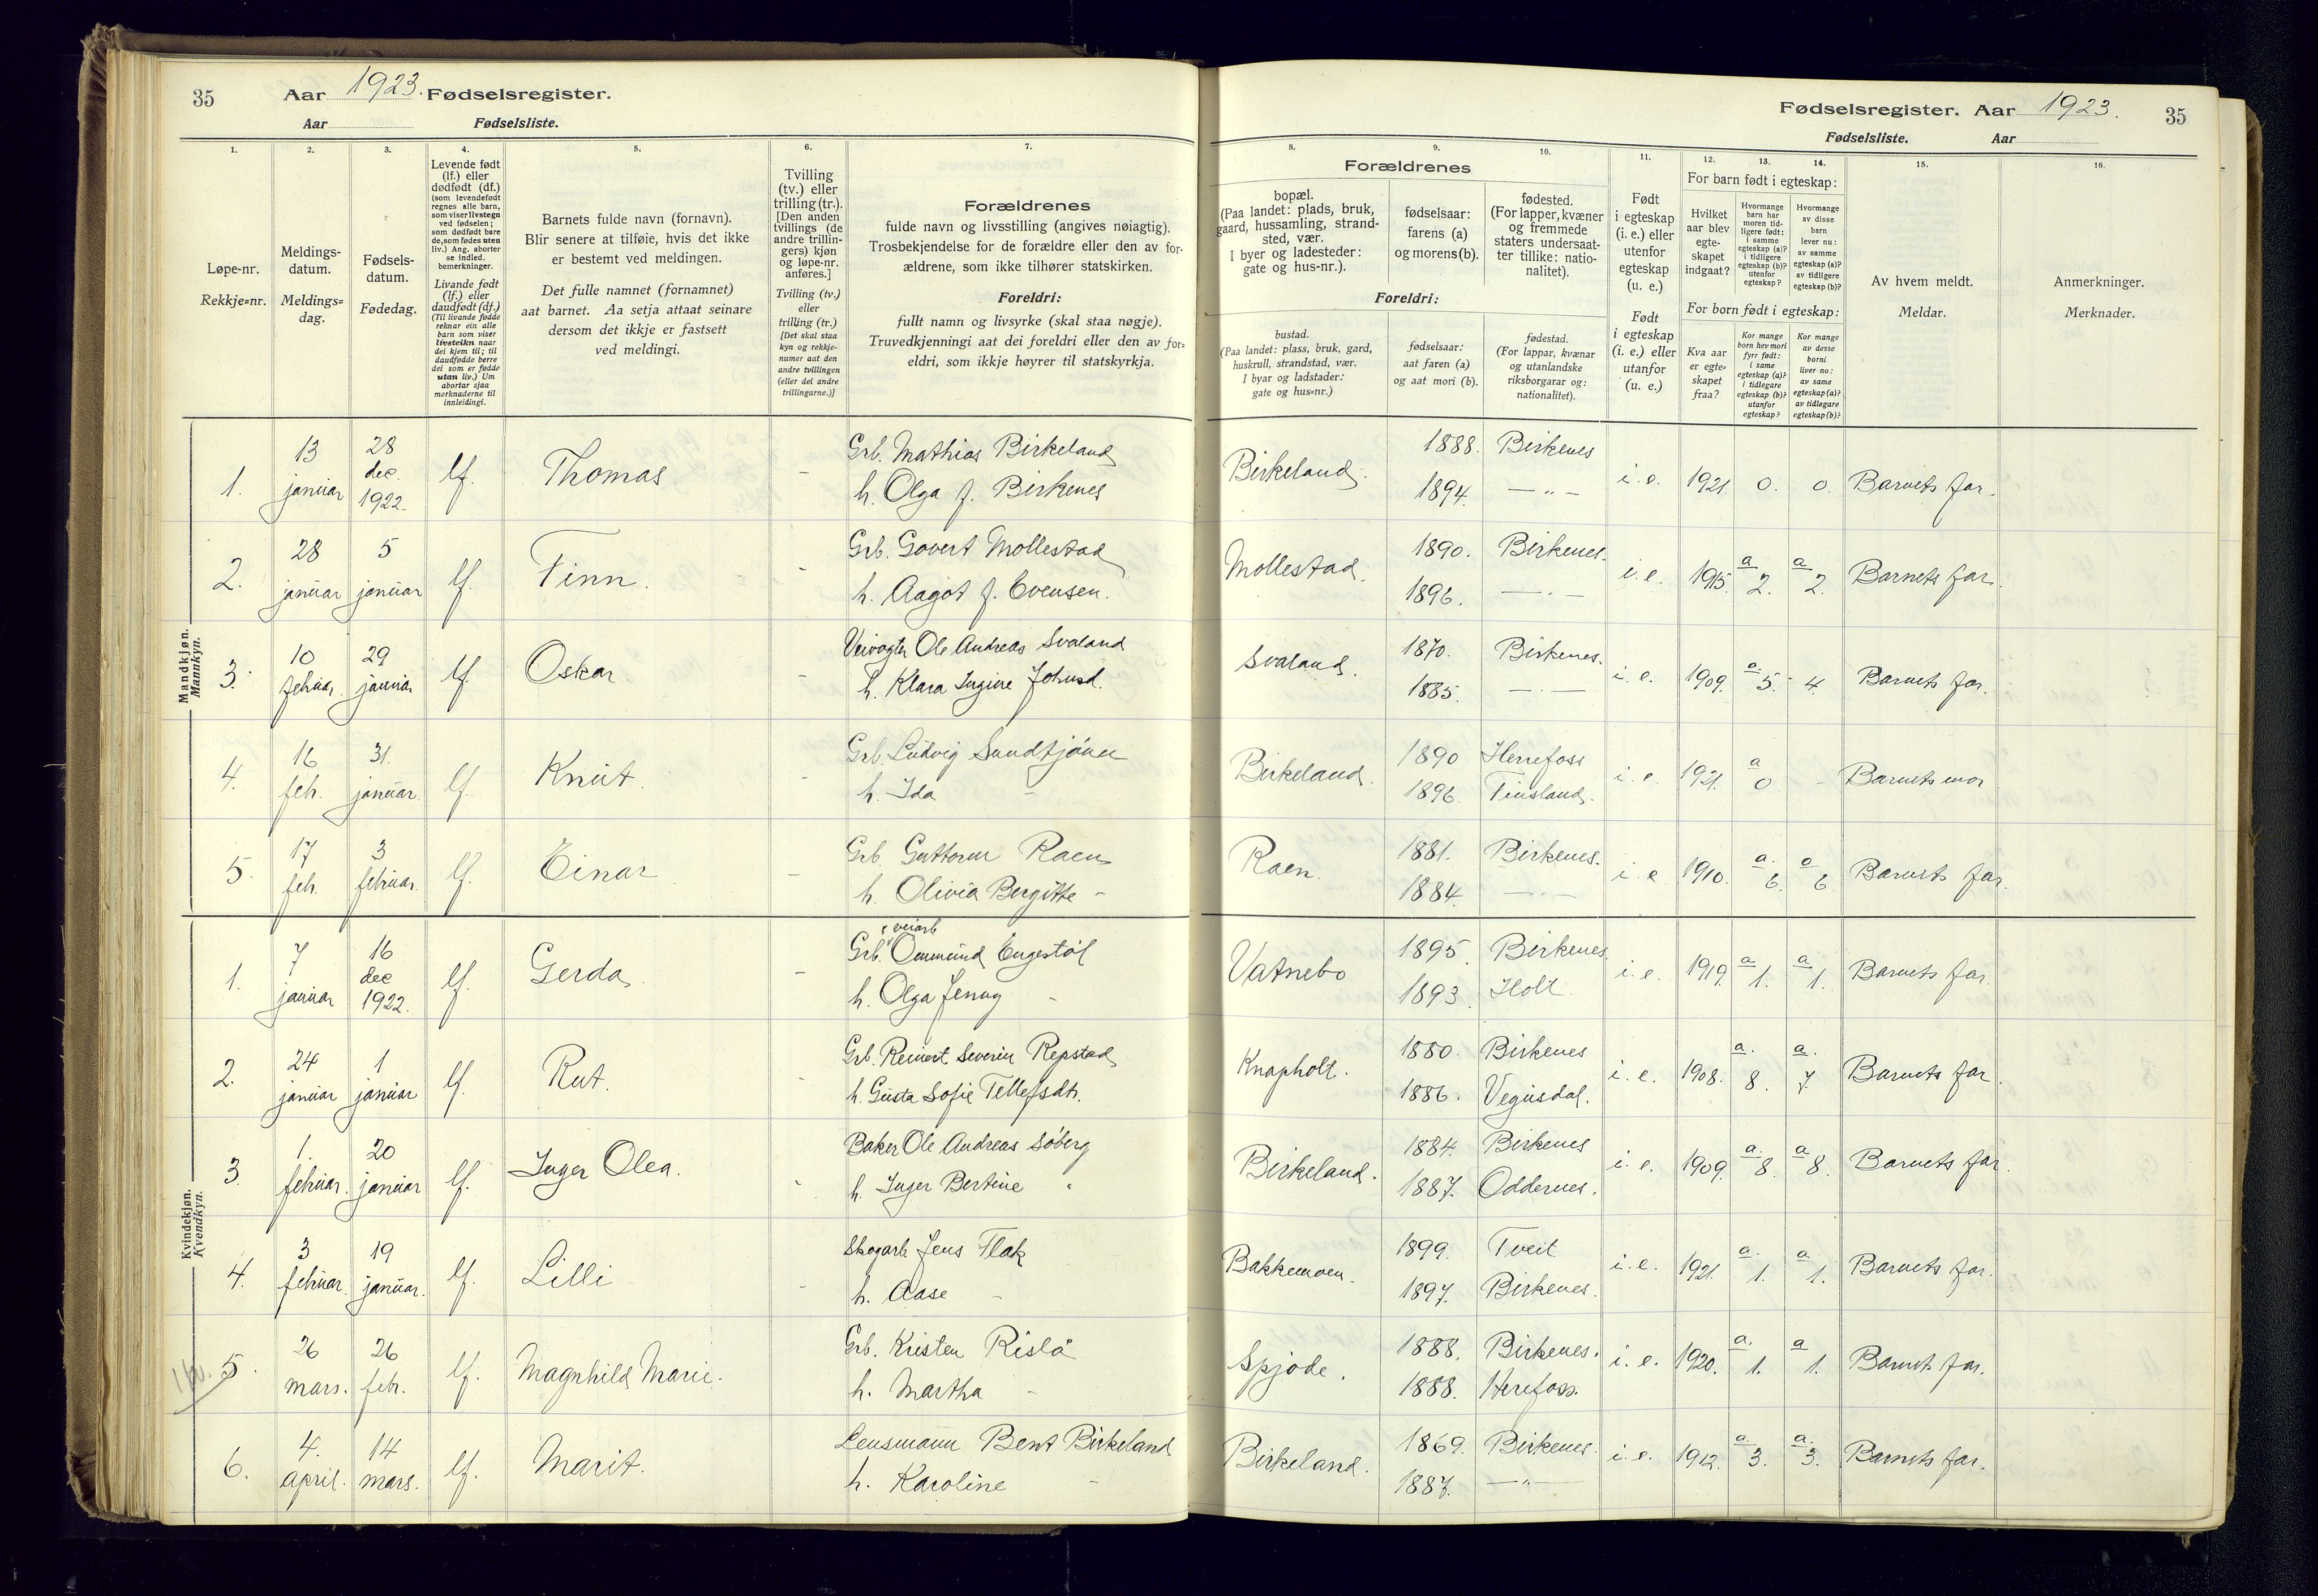 35 Aar 1923. Fødselsregister.
Aar Fødselsliste.
Fødselsregister. Aar 1923. 35
Fødselsliste. Aar
1.
Løpe-nr.
Rekkje=nr.
2.
Meldings-
datum.
Meldings=
dag.
3.
Fødsels-
datum.
Fødedag.
4.
Levende født
(lf.) eller
dødfødt (df.)
(som levendefødt
regnes alle barn,
som viser livstegn
ved fødselen;
som dødfødt bare
de, som fødes uten
liv.) Ang. aborter
se indled.
bemerkninger.
Livande født
(lf.) eller
daudfødt (df.)
(Til livande fødde
reknar ein alle
barn som viser
livsteikn naar
dei kjem til; til
daudfødde berre
dei som er fødde
utan liv.) Um
abortar sjaa
merknaderne til
innleidingi.
5.
Barnets fulde navn (fornavn).
Blir senere at tilføie, hvis det ikke
er bestemt ved meldingen.
Det fulle namnet (fornamnet)
aat barnet. Aa setja attaat seinare
dersom det ikkje er fastsett
ved meldingi.
6.
Tvilling
(tv.) eller
trilling (tr.).
[Den anden
tvillings (de
andre trillin-
gers) kjøn
og løpe-nr.
anføres.]
Tvilling (tv.)
eller
trilling (tr.)
[Det skal staa
kyn og rekkje-
numer aat den
andre tvillingen
(eller dei andre
trillingarne.)]
7.
Forældrenes
fulde navn og livsstilling (angives nøiagtig).
Trosbekjendelse for de forældre eller den av for-
ældrene, som ikke tilhører statskirken.
Foreldri:
fullt namn og livsyrke (skal staa nøgje).
Truvedkjenningi aat dei foreldri eller den av for=
eldri, som ikkje høyrer til statskyrkja.
8. 9. 10.
Forældrenes
bopæl.
(Paa landet: plads, bruk,
gaard, hussamling, strand-
sted, vær.
I byer og ladesteder:
gate og hus-nr.).
fødselsaar:
farens (a)
og morens (b).
fødested.
(For lapper, kvæner
og fremmede
staters undersaat-
ter tillike: natio-
nalitet).
Foreldri:
bustad.
(Paa landet: plass, bruk, gard,
huskrull, strandstad, vær.
I byar og ladstader:
gate og hus=nr.)
fødselsaar:
aat faren (a)
og aat mori (b).
fødestad.
(For lappar, kvænar
og utanlandske
riksborgarar og:
nationalitet).
11.
Født
i egteskap
(i. e.) eller
utenfor
egteskap
(u. e.)
Født
i egteskap
(i. e.) eller
utanfor
(u. e.)
12. 13. 14.
For barn født i egteskap:
Hvilket
aar blev
egte-
skapet
indgaat?
Hvormange
barn har
moren tid-
ligere født:
i samme
egteskap (a)?
i tidligere
egteskap (b)?
utenfor
egteskap?
Hvormange
av disse
barn
lever nu:
av samme
egteskap (a)?
av tidligere
egteskap (b)?
For born født i egteskap:
Kva aar
er egte=
skapet
fraa?
Kor mange
born hev mori
fyrr født:
i same
egteskap (a)?
i tidlegare
egteskap (b)?
utanfor
egteskap?
Kor mange
av desse
borni
liver no:
av same
egteskap (a)?
av tidlegare
egteskap (b)?
15.
Av hvem meldt.
Meldar.
16.
Anmerkninger.
Merknader.
Mandkjøn.
Mannkyn.
1. 13 januar 28 dec. 1922. lf. Thomas - Grb. Mathias Birkeland
h. Olga f. Birkenes
Birkeland. 1888. Birkenes
1894. —"— i. e. 1921. 0. 0. Barnets far.
2. 28 januar 5 januar lf. Finn. - Grb. Govert Mollestad
h. Aagot f. Evensen.
Mollestad. 1890. Birkenes.
1896. —"— i. e. 1915. a 2. a 2. Barnets far.
3. 10 februar. 29 januar lf. Oskar - Veivogter Ole Andreas Svaland
h. Klara Ingine Johnsd.
Svaland. 1870. Birkenes.
1885. —"— i. e. 1909. a. 5. 4. Barnets far.
4. 16 feb. 31. januar. lf. Knut. - Grb. Ludvig Sundtjønn
h. Ida -
Birkeland. 1890 Herrefoss
1896. Finsland. i. e. 1921. a 0 - Barnets mor
5. 17 feb. 3 februar. lf. Einar - Grb. Guttorm Raen
h. Olivia Bergitte -
Raen. 1881. Birkenes.
1884. —"— i. e 1910. a. 6. a 6 Barnets far.
Kvindekjøn.
Kvendkyn.
1. 7 januar 16 dec 1922. lf. Gerda. - Grb. "veiarb Ommund Engestøl
h. Olga Jenny -
Vatnebo 1895. Birkenes.
1893. Holt i. e. 1919. a 1. a 1. Barnets far.
2. 24 januar 1 januar lf. Rut. - Grb. Reinert Severin Repstad
h. Gusta Sofie Tellefsdtr.
Knapholt. 1880. Birkenes
1886. Vegusdal. i. e. 1908. a. 8. a. 7 Barnets far.
3. 1. februar. 20 januar lf. Inger Olea. - Baker Ole Andreas Søberg
h. Inger Bertine "
Birkeland. 1884. Birkenes
1887. Oddernes. i. e. 1909. a. 8. a 8. Barnets far.
4. 3 februar. 19 januar. lf. Lilli - Skogarb. Jens Flak
h. Aase -
Bakkemoen. 1899. Tveit
1897. Birkenes. i. e. 1921. a. 1. a 1. Barnets far.
5. 26 mars. 26 febr. lf. Magnhild Marie. Grb. Kristen Rislå
h. Martha -
Spjøde. 1888. Birkenes.
1888. Herefoss. i. e. 1920. a. 1. a 1. Barnets far.
6. 4. april. 14 mars. lf. Marit. Lensmann Bent Birkeland
h. Karoline -
Birkeland. 1869. Birkenes.
1887. —"— i. e. 1912. a. 3. a. 3. Barnets far.